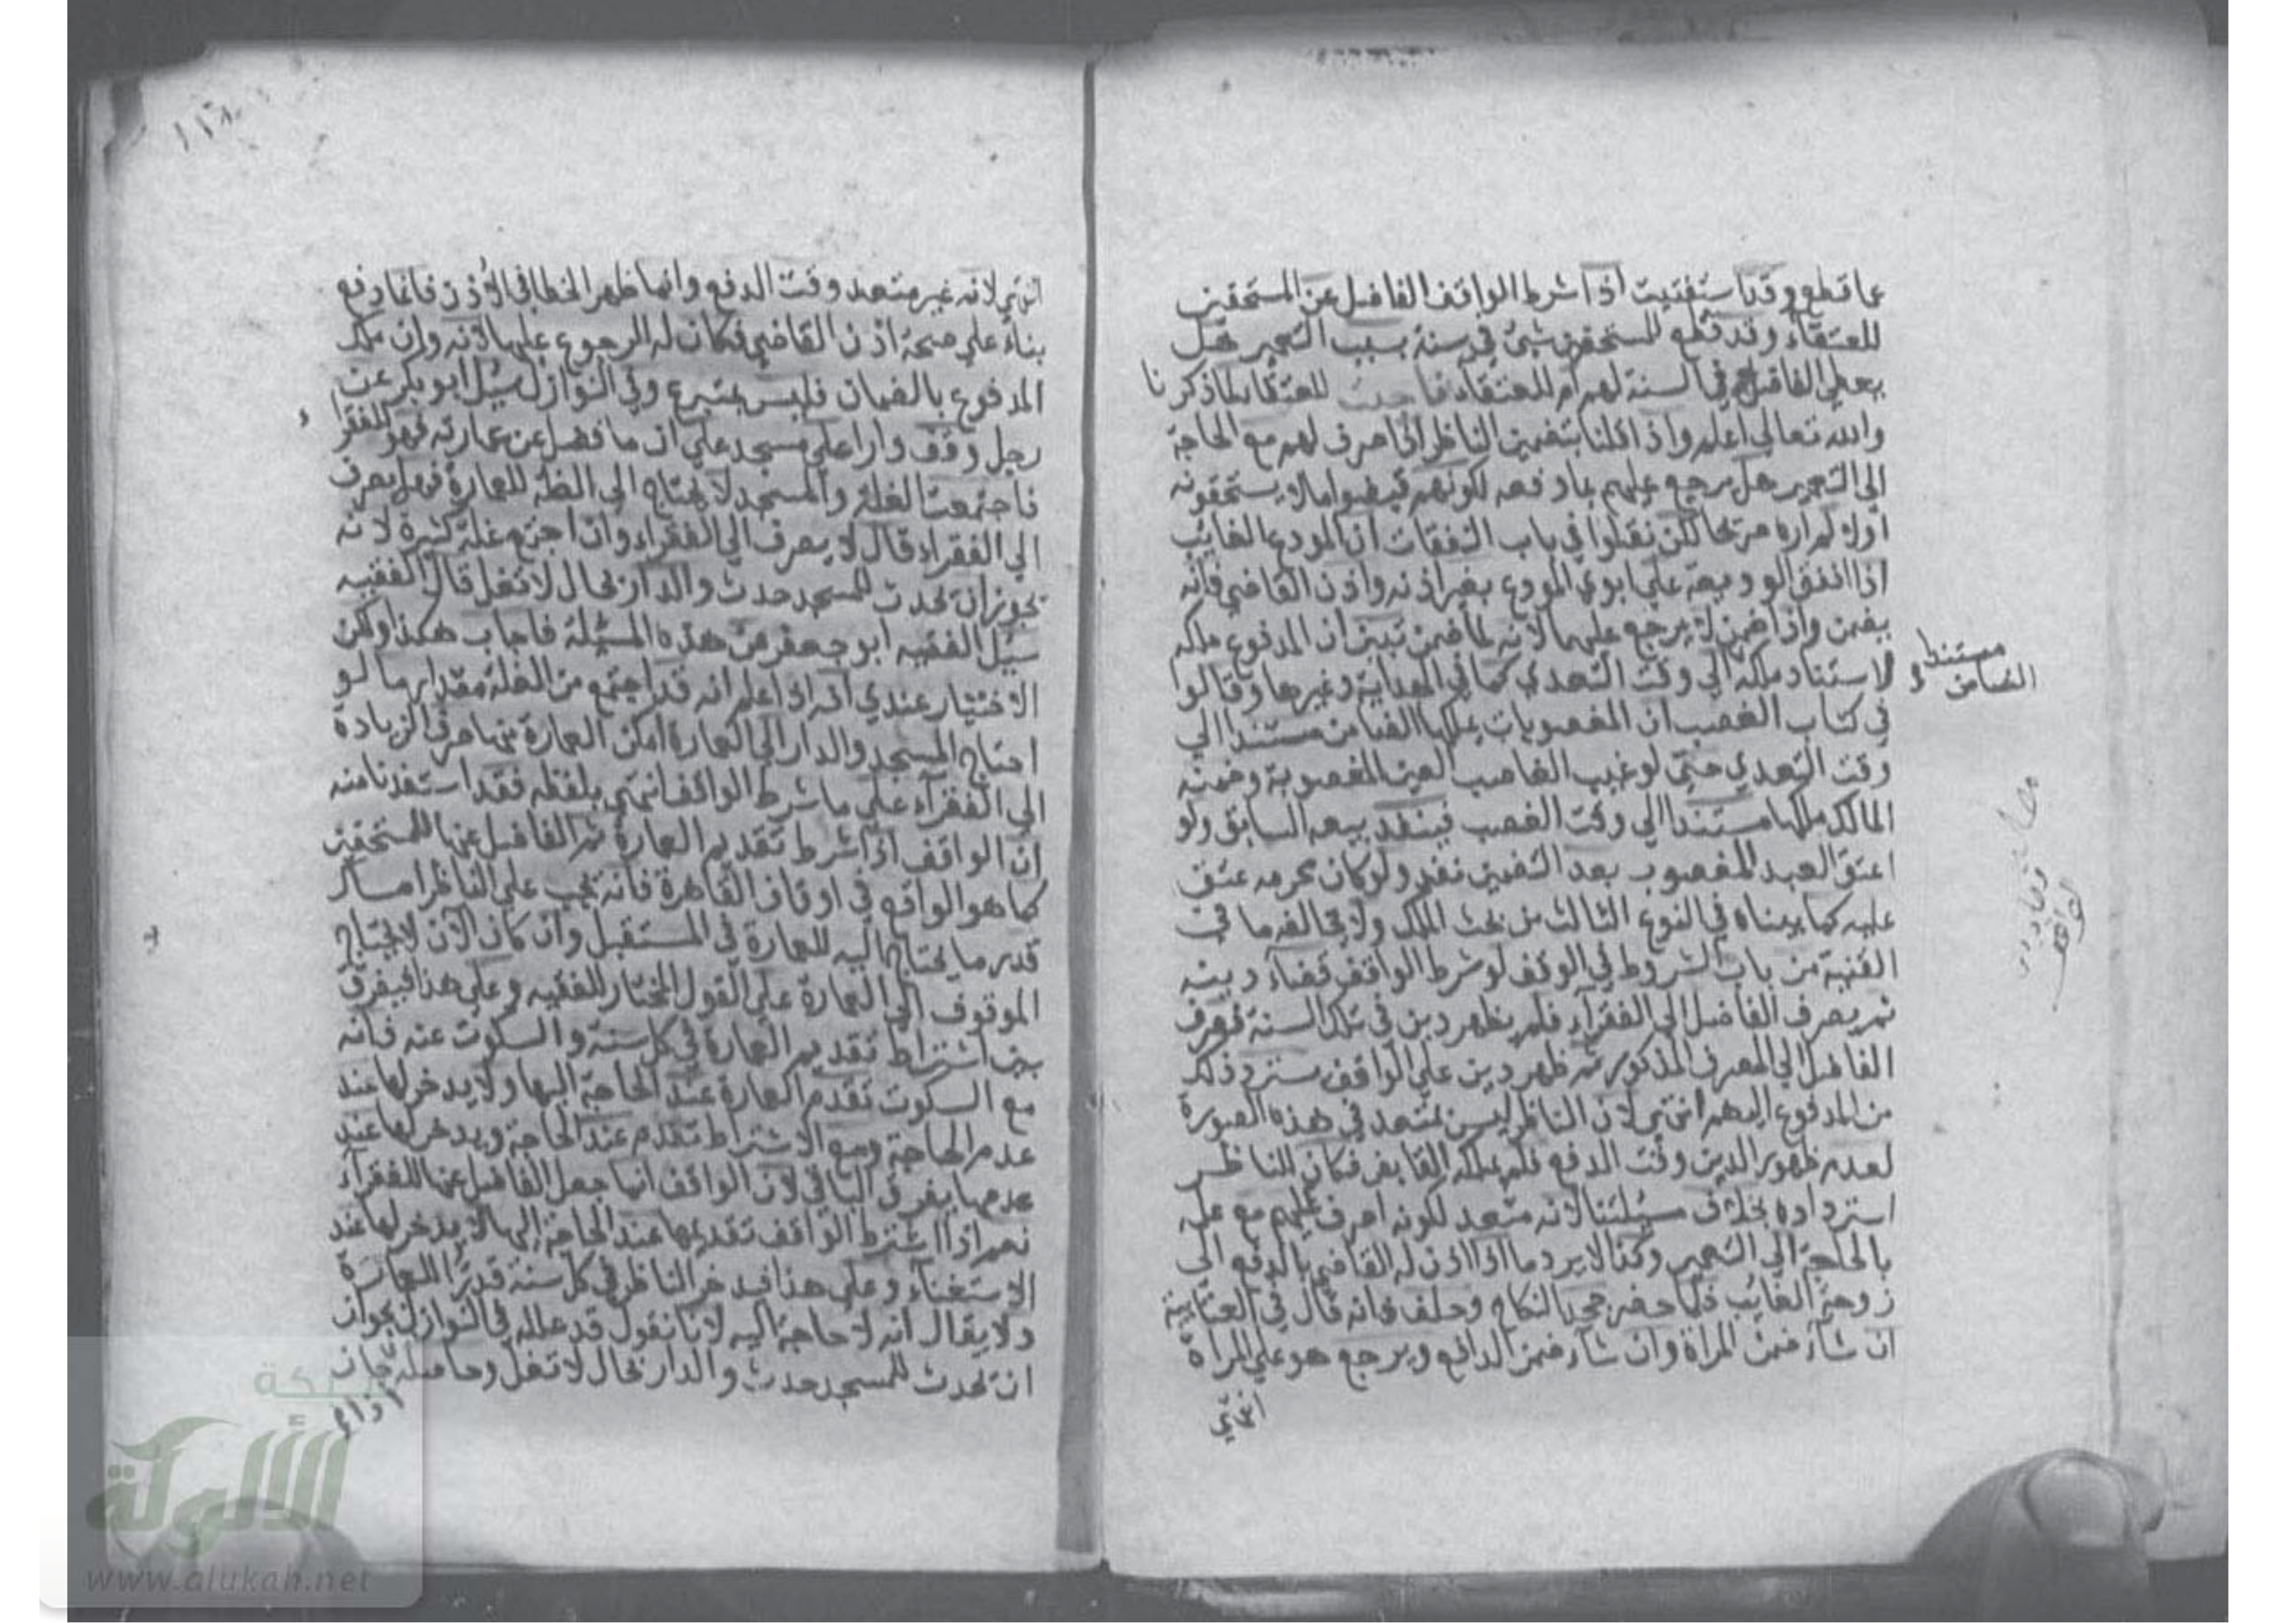 عما قطع وقد استفتيت اذا شرط الواقف الفاضل عن المستحقين
للعتقاء وقد قطع للمستحقين شئ في سنة بسبب التعمير هل
يعطى الفاضل في السنة لهم ام للعتقاء فاجبت للعتقا لما ذكرنا
والله تعالى اعلم واذا قلنا بتضمين الناظر اذا صرف لهم مع الحاجة
الى التعمير هل يرجع عليهم بما دفعه لكونهم قبضوا ما لا يستحقونه
اولا لم اره صريحا لكن نقلوا في باب النفقات ان المودع الغايب
اذا انفق الوديعة على ابوي المودع بغير اذنه واذن القاضي فانه
يضمن واذا ضمن لا يرجع عليهما لانه لما ضمن تبين ان المدفوع ملكه
لاستناد ملكه الى وقت التعدي كما في الهداية وغيرها وقالوا
في كتاب الغصب ان المغصوبات يملكها الضامن مستندا الى
وقت التعدي حتى لو غيب الغاصب العين المغصوبة وضمنه
المالك ملكها مستندا الى وقت الغصب فينفذ بيعه السابق ولو
اعتق العبد المغصوب بعد التضمين نفذ ولو كان محرمه عتق
عليه كما بيناه في النوع الثالث من بحث الملك ولا يخالفه ما في
القنية من باب الشروط في الوقف لو شرط الواقف قضاء دينه
ثم يصرف الفاضل الى الفقراء فلم يظهر دين في تلك السنة فصرف
الفاضل الى المصرف المذكور ثم ظهر دين على الواقف يسترد ذلك
من المدفوع اليهم انتهى لان الناظر ليس بمتعد في هذه الصورة
لعدم ظهور الدين وقت الدفع فلم يملكه القابض فكان للناظر
استرداده بخلاف مسئلتنا لانه متعد لكونه صرف عليهم مع علمه
بالحاجة الى التعمير وكذا لا يرد ما اذا اذن له القاضي بالدفع الى
زوجة الغائب فلما حضر جحد النكاح وحلف فانه قال في العتابية
ان شاء ضمن المراة وان شاء ضمن الدافع ويرجع هو على المراة
انتهى
مستندا
الضامن
انتهي لانه غير متعد وقت الدفع وانما ظهر الخطا في الاذن فانما دفع
بناء على صحة اذن القاضي فكان له الرجوع عليها لانه وان ملك
المدفوع بالضمان فليس بمتبرع وفي النوازل سئل ابو بكر عن
رجل وقف دارا على مسجد على ان ما فضل عن عمارته فهو للفقرا
فاجتمعت الغلة والمسجد لا يحتاج الى الغلة للعمارة فهل يصرف
الى الفقراء قال لا يصرف الى الفقراء وان اجتمع غلة كثيرة لانه
يجوز ان يحدث للمسجد حدث والدار بحال لا تغل قال الفقيه
سئل الفقيه ابو جعفر عن هذه المسئلة فاجاب هكذا ولكن
الاختيار عندي انه اذا علم انه قد اجتمع من الغلة مقدار ما لو
احتاج المسجد والدار الى العمارة امكن العمارة منها صرف الزيادة
الى الفقرآء على ما شرط الواقف انتهى بلفظه فقد استفدنا منه
ان الواقف اذا شرط تقديم العمارة ثم الفاضل عنها للمستحقين
كما هو الواقع في اوقاف القاهرة فانه يجب على الناظر امساك
قدر ما يحتاج اليه للعمارة في المستقبل وان كان الآن لا يحتاج
الموقوف الى العمارة على القول المختار للفقيه وعلى هذا فيفرق
بين اشتراط تقديم العمارة في كل سنة والسكوت عنه فانه
مع السكوت تقدم العمارة عند الحاجة اليها ولا يدخر لها عند
عدم الحاجة ومع الاشتراط تقدم عند الحاجة ويدخر لها عند
عدمها يفرق الباقي لان الواقف انما جعل الفاضل عنها للفقراء
نعم اذا اشترط الواقف تقديمها عند الحاجة اليها لا يدخر لها عند
الاستغناء وعلى هذا فيدخر الناظر في كل سنة قدرا للعمارة
ولا يقال انه لا حاجة اليه لانا نقول قد علله في النوازل بجواز
ان يحدث للمسجد حدث والدار بحال لا تغل وحاصله جاز
شبكة
الألوكة
www.alukah.net